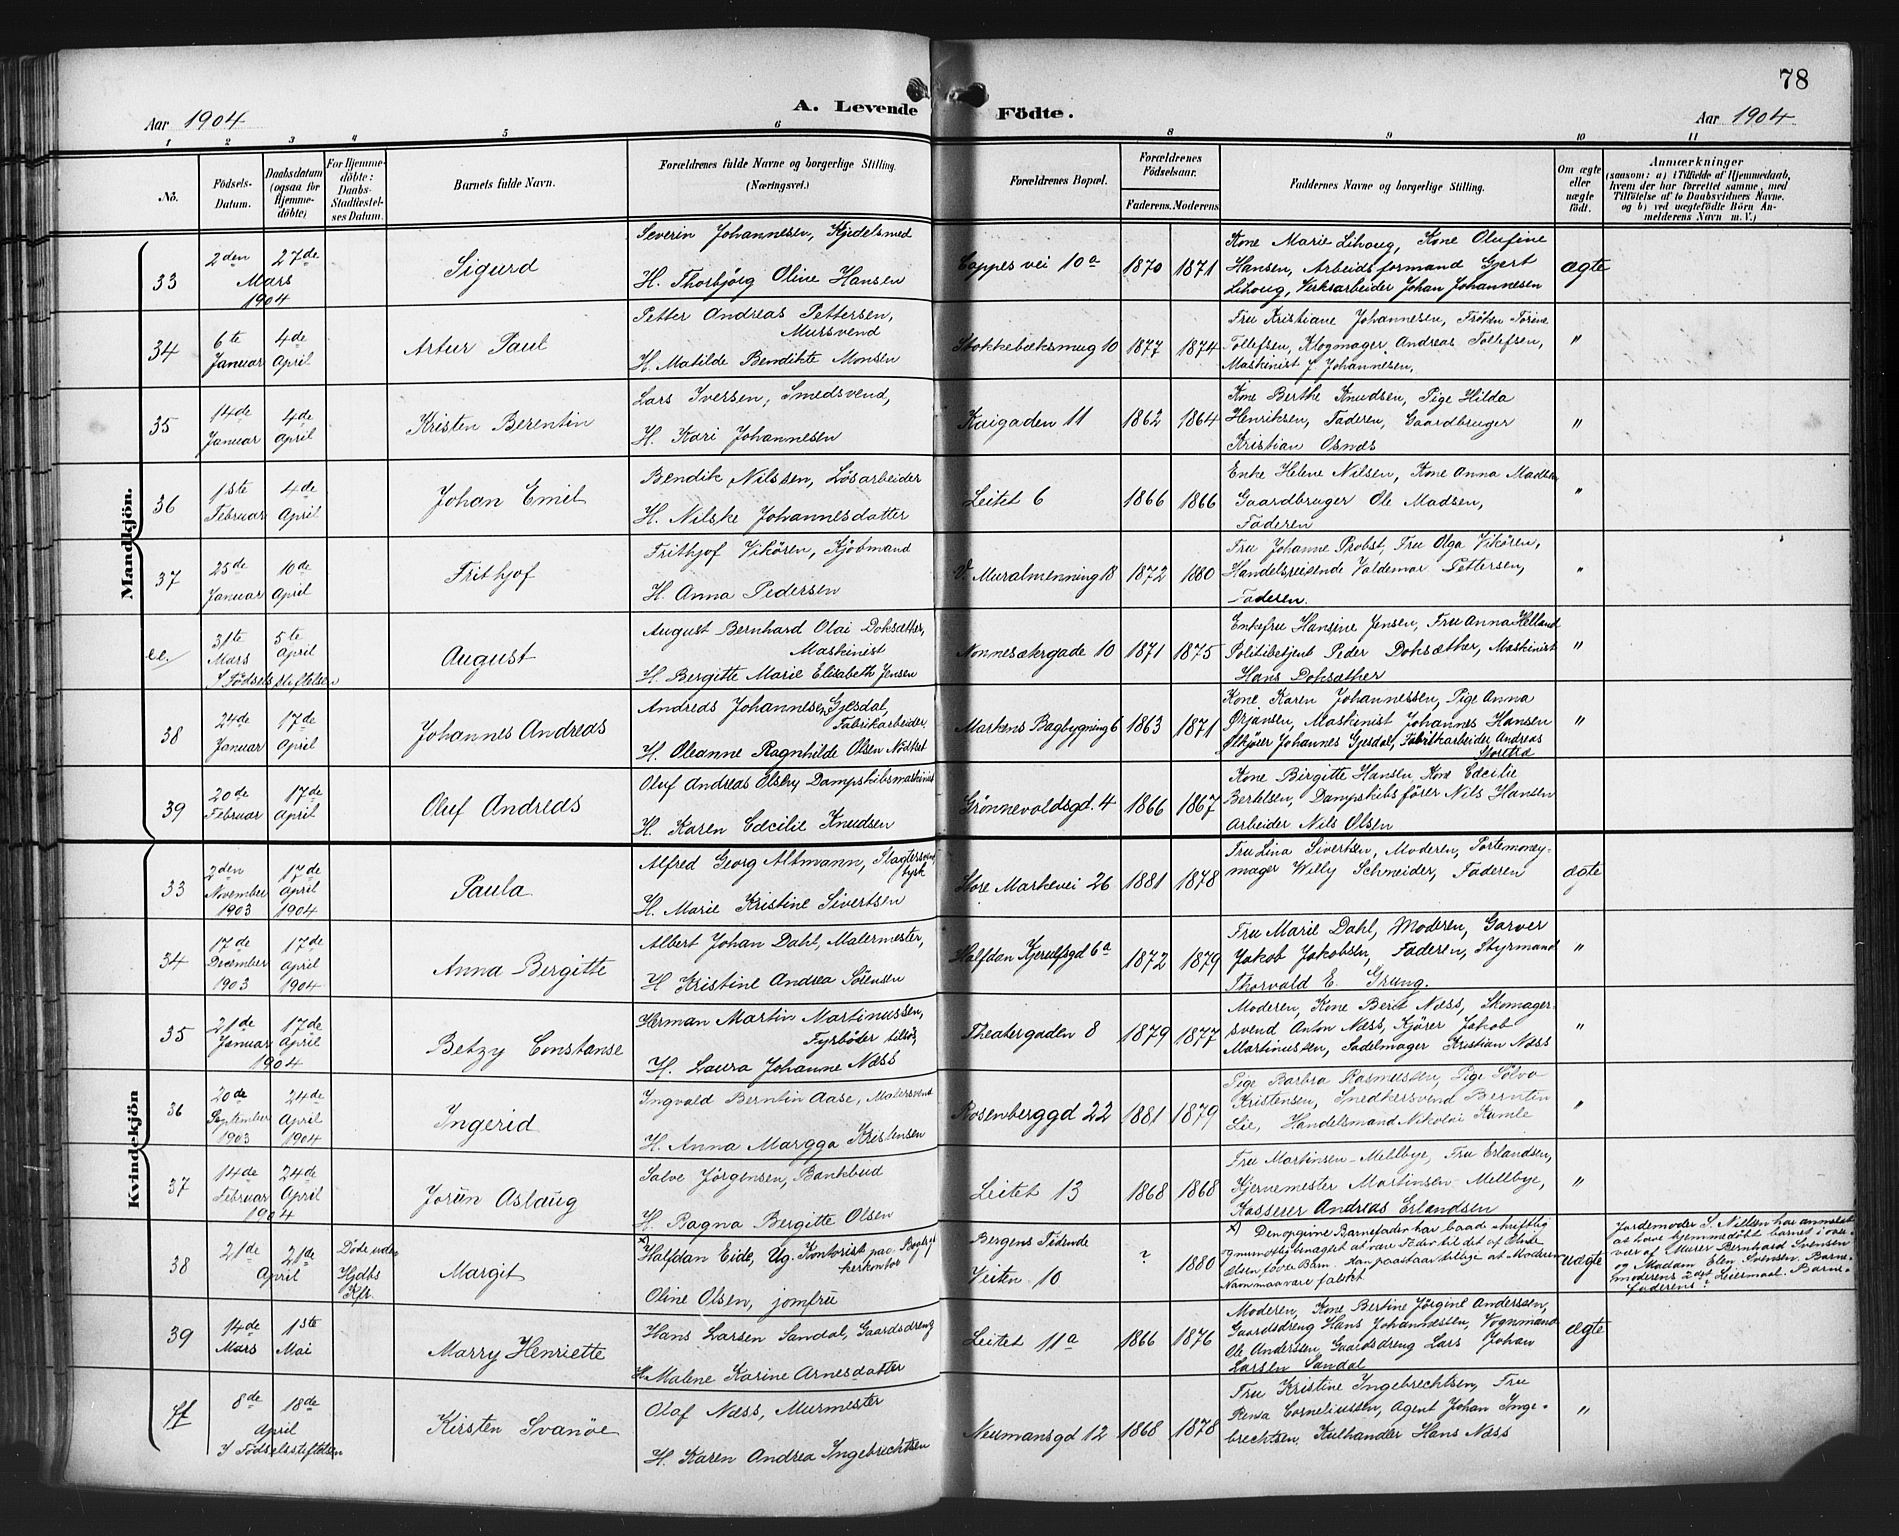 78
Aar 1904
A. Levende Födte.
Aar 1904
1 2 3 4 5 6 8 9 10 11
No.
Födsels-Datum.
Daabsdatum (ogsaa for Hjemmedöbte)
For Hjemmedöbte: Daabs-Stadfæstelses Datum.
Barnets fulde Navn.
Forældrenes fulde Navne og borgerlige Stilling. (Næringsvei.)
Forældrenes Bopæl.
Forældrenes Födselsaar.
Faderens. Moderens.
Faddernes Navne og borgerlige Stilling.
Om ægte eller uægte födt.
Anmærkninger
(saasom: a) i Tilfælde af Hjemmedaab, hvem der har forrettet samme, med Tilföielse af to Daabsvidners Navne. og b) ved uægtefödte Börn Anmelderens Navn m. V.)
Mandkjön.
33 2den Mars 1904 27de Sigurd
Severin Johannesen, Kjedelsmed
H. Thorbjörg Oline Hansen
Coppes vei 10a 1870 1871
Kone Marie Lihoug, Kone Olufine
Hansen, Arbeidsformand Gjert
Lihoug, Verksarbeider Johan Johannesen
ægte
34 6te Januar 4de April Artur Paul
Petter Andreas Pettersen,
Mursvend
H. Matilde Bendikte Monsen
Stokkebæksmug 10 1877 1874
Fru Kristiane Johannesen, Fröken Torine
Tollefsen, Klogmager Andreas Tollefsen,
Maskinist J. Johannesen,
"
35 14de Januar 4de April Kristen Berentin
Lars Iversen, Smedsvend,
H. Kari Johannesen
Kaigaden 11 1862 1864
Kone Berthe Knudsen, Pige Hilda
Henriksen, Faderen, Gaardbruger
Kristian Osnæs
"
36 1ste Februar 4de April Johan Emil
Bendik Nilssen, Lösarbeider
H. Nilske Johannesdatter
Leitet 6 1866 1866
Enke Helene Nilsen, Kone Anna Madsen
Gaardbruger Ole Madsen,
Faderen
"
37 25de Januar 10de April Frithjof
Frithjof Vikören, Kjöbmand
H. Anna Pedersen
V. Muralmenning 18 1872 1880
Fru Johanne Probst, Fru Olga Vikören,
Handelsreisende Valdemar Pettersen,
Faderen.
"
ee. 31te Mars 5te April I Födselsstiftelsen August
August Bernhard Olai Doksæther,
Maskinist
H. Bergitte Marie Elisabeth Jensen
Nonnesætergade 10 1871 1875
Enkefru Hansine Jensen, Fru Anna Helland
Politibetjent Peder Doksæther, Maskinist
Hans Doksæther
"
38 24de Januar 17de April Johannes Andreas
Andreas Johannesen Gjesdal,
Fabrikarbeider
H. Oleanne Ragnhilde Olsen Nödtvet
Markens Bagbygning 6 1863 1871
Kone Karen Johannessen, Pige Anna
Ørjansen, Maskinist Johannes Hansen
Ølkjører Johannes Gjesdal, Fabrikarbeider Andreas
"
39 20de Februar 17de April Oluf Andreas
Oluf Andreas Olsen, Dampskibsmaskinist
H. Karen Cecilie Knudsen
Grønnevoldsgd. 4 1866 1867
Kone Birgitte Hansen, Kone Cecilie
Bertelsen, Dampskibsförer Nils Hansen
Arbeider Nils Olsen
Kvindekjön
33 2den November 1903 17de April 1904 Paula
Alfred Georg Altmann, Slagtersvend,
tysk
H. Marie Kristine Sivertsen
Store Markevei 26 1881 1878
Fru Lina Sivertsen, Moderen, Portemoney-
mager Willy Schneider, Faderen
ægte
34 17de December 1903 17de April 1904 Anna Bergitte
Albert Johan Dahl, Malermester,
H. Kristine Andrea Sörensen
Halfdan Kjerulfsgd 6a 1872 1879
Fru Marie Dahl, Moderen, Garver
Jakob Jakobsen, Faderen, Styrmand
Thorvald E. Grung.
"
35 21de Januar 17de April 1904 Betzy Constanse
Herman Martin Martinussen,
Fyrböder tilsös
H. Laura Johanne Næss
Theatergaden 8 1879 1877
Moderen, Kone Berit Næss, Skomager-
svend Anton Næss, Kjörer Jakob
Martinussen, Sadelmager Kristian Næss
"
36 20de September 1903 24de April 1904 Ingerid
Ingvald Berntin Aase, Malersvend
H. Anna Margga Kristensen
Rosenberggd 22 1881 1879
Pige Barbra Rasmussen, Pige Solva
Kristensen, Snedkersvend Berntin
Lie, Handelsmand Nikolai Kumle
"
37 14de Februar 24de April 1904 Jorun Aslaug
Salve Jörgensen, Bankbud
H. Ragna Bergitte Olsen
Leitet 13 1868 1868
Fru Martinsen-Mellbye, Fru Erlandsen,
Gjernemester Martinsen-Mellbye,
Kasserer Andreas Erlandsen
"
38 21de 21de April Döde uden Hjdbs Kft. Margit
x) Halfdan Eide, Ug. Kontorist paa
Oline Olsen, jomfru
Bergens Tidende
Veiten 10 ? 1880
x) Den opgivne Barnefader har baade skriftlig
og mundtlig benægtet at være Fader til det af Oline
Olsen födte Barn. Han paastaar tillige at Moderens
Navn maa være falskt
uægte
Jordemoder S. Nielsen har anmeldt
at have hjemmedöbt barnet i over-
vær af Murer Bernhard Svensen
og Madam Elen Svensen. Barne-
moderens 2det Leiermaal. Barne-
faderens ?
39 14de Mars 1ste Mai Marry Henriette
Hans Larsen Sandal, Gaardsdreng
H. Malene Karine Arnesdatter
Leitet 11a 1866 1876
Moderen, Kone Bertine Jörgine Anderssen,
Gaardsdreng Hans Johannessen, Vognmand
Ole Andersen, Gaardsdreng Lars Johan
Larsen Sandal
ægte
ff 8de 18de April I Födselsstiftelsen Kirsten Svanöe
Olaf Næss, Murmester
H. Karen Andrea Ingebrechtsen
Neumansgd 12 1868 1878
Fru Kristine Ingebrechtsen, Fru
Rena Corneliussen, Agent Johan Inge-
brechtsen, Kulhandler Hans Næss
"